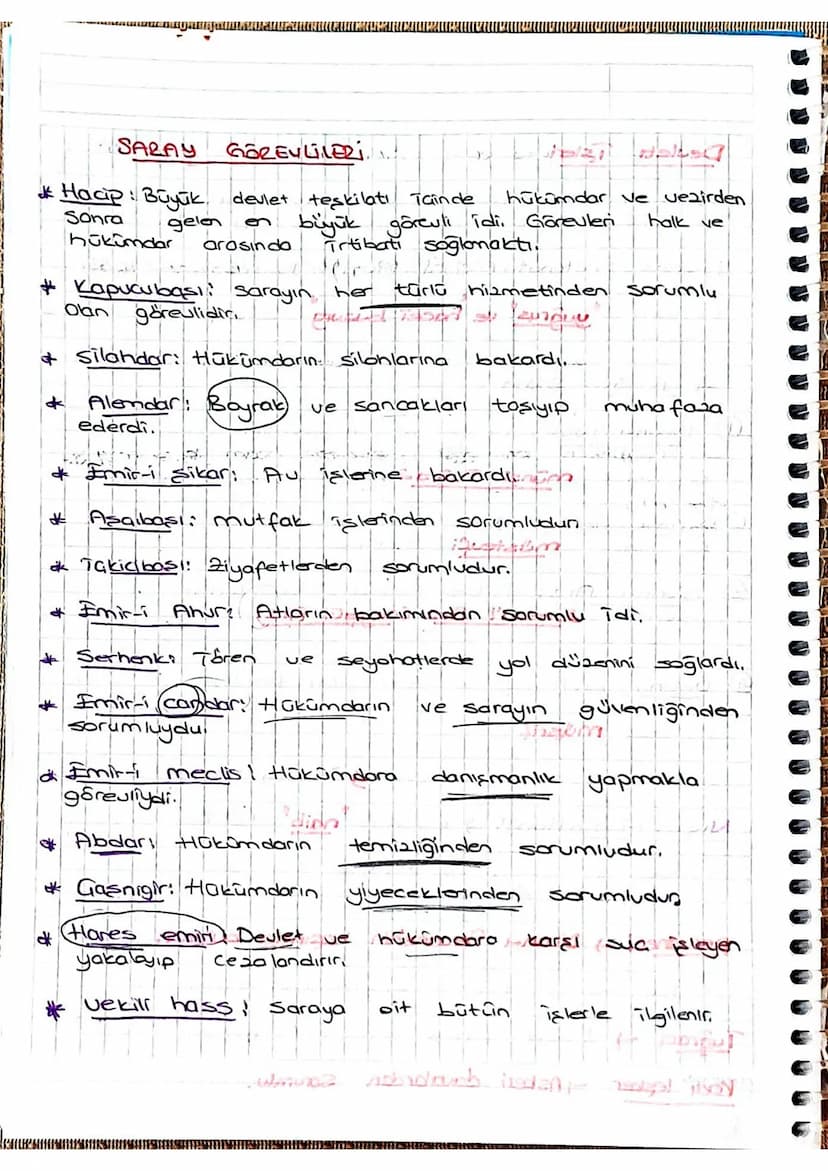 SARAY GÖREVLİLERİ
* Hacip: Büyük devlet teşkilatı içinde hükümdar ve vezirden
sonra gelen en büyük görevli idi. Görevleri halk ve
hükümdar arasında irtibatı sağlamaktı.
* Kapucubaşı: Sarayın her türlü hizmetinden sorumlu
olan görevlidir.
* Silahdar: Hükümdarın silahlarına bakardı.
* Alemdar: Bayrak ve sancakları taşıyıp muhafaza
ederdi.
* Emir-i Şikar: Av işlerine bakardı.
* Aşçıbaşı: mutfak işlerinden sorumludur
* Takidbası: Ziyafetlerden sorumludur.
* Emir-i Ahur: Atların bakımından sorumlu idi.
* Serhenk: Tören ve seyahatlerde yol düzenini sağlardı.
* Emir-i candar: Hükümdarın ve sarayın güvenliğinden
sorumluydu.
* Emir-i meclis: Hükümdara danışmanlık yapmakla
görevliydi.
* Abdar: Hükümdarın temizliğinden sorumludur.
* Çaşnigir: Hükümdarın yiyeceklerinden sorumludur
* Hares emiri: Devlet ve hükümdara karşı suç işleyen
yakalayıp cezalandırır.
* Vekili hass: Saraya ait bütün işlerle ilgilenir.